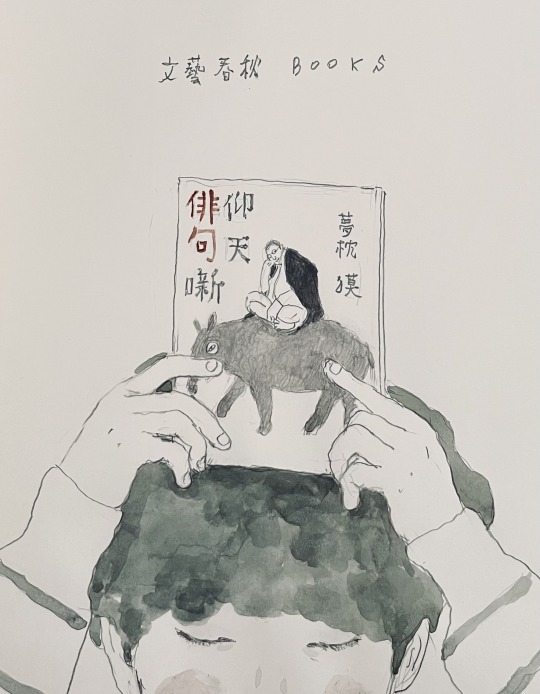 文藝春秋 BOOKS
夢枕 獏
仰天
俳句噺